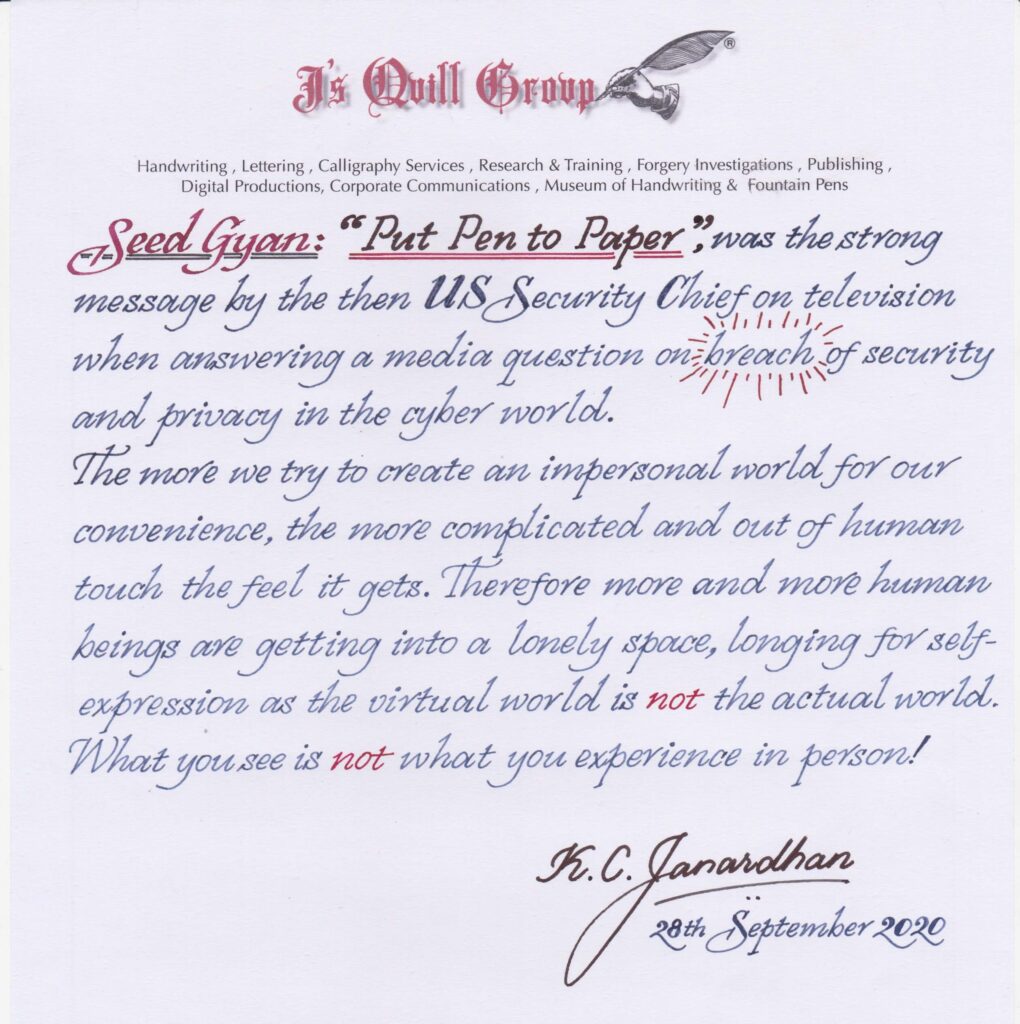 J's Quill Group ®
Handwriting , Lettering , Calligraphy Services , Research & Training , Forgery Investigations , Publishing ,
Digital Productions, Corporate Communications , Museum of Handwriting & Fountain Pens
Seed Gyan: “Put Pen to Paper”, was the strong
message by the then US Security Chief on television
when answering a media question on breach of security
and privacy in the cyber world.
The more we try to create an impersonal world for our
convenience, the more complicated and out of human
touch the feel it gets. Therefore more and more human
beings are getting into a lonely space, longing for self-
expression as the virtual world is not the actual world.
What you see is not what you experience in person!
K. C. Janardhan
28th September 2020